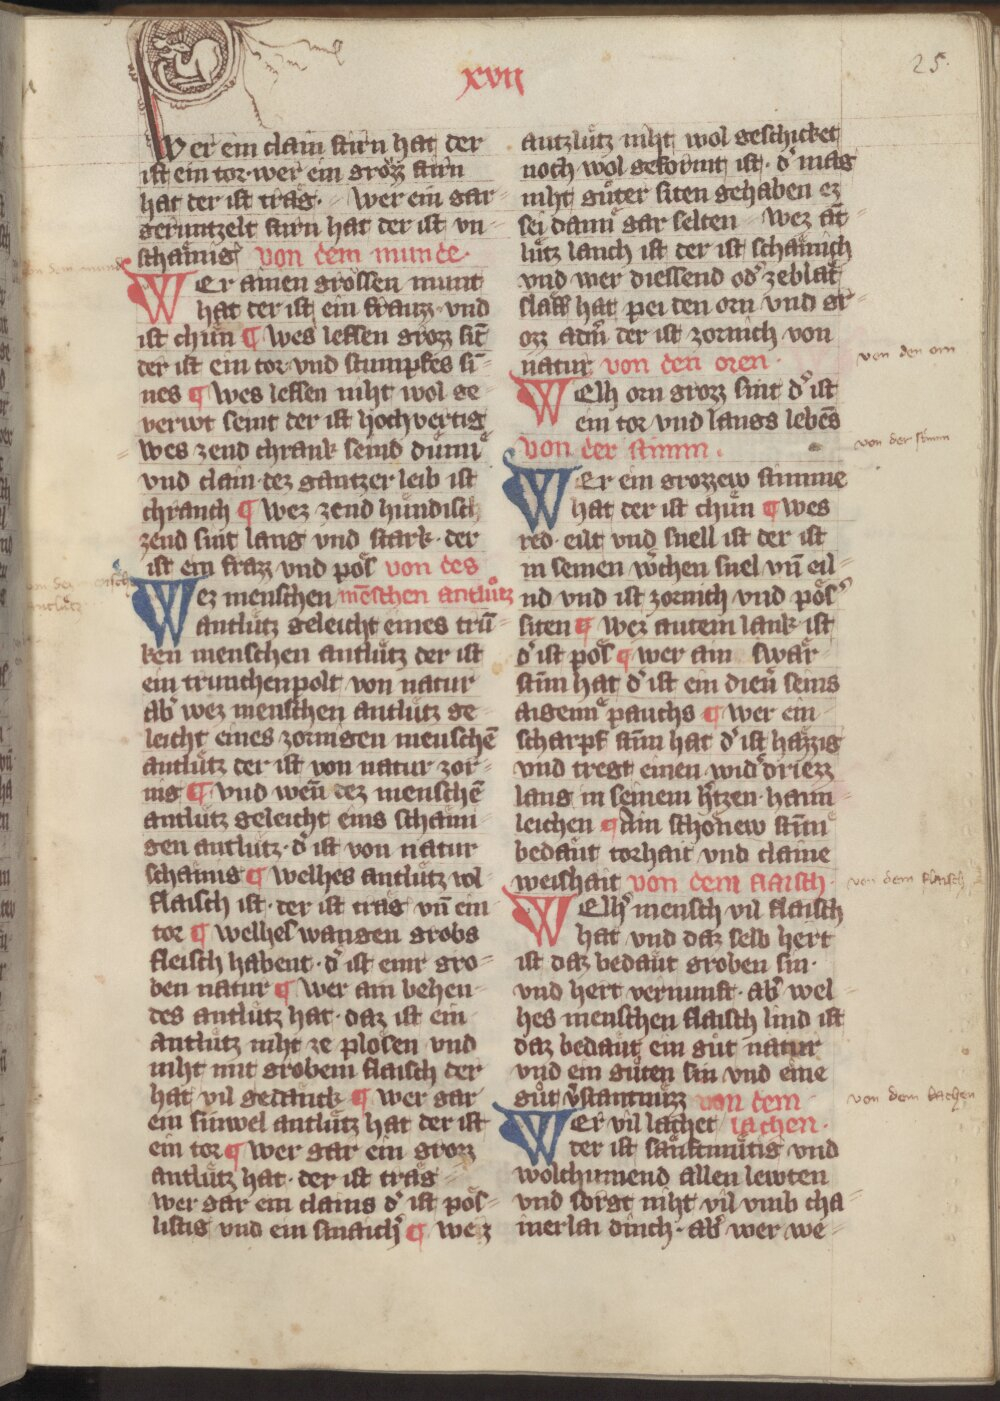 xvii
25.
Wer ein clain stirn hat der
ist ein tor. wer ein grozz stirn
hat der ist träg. Wer ein gar
geruntzelt stirn hat der ist vn
schämig von dem munde.
WEr ainen grossen munt
hat der ist ein frazz. vnd
ist chün ¶ Wes leffen groz sīt
der ist ein tor vnd stumpfes si
nes ¶ Wes leffen niht wol ge
verwt seint der ist hochvertig
Wes zend chrank seind dünn
vnd clain dez gantzer leib ist
chranch ¶ Wez zend hündisch
zend sint lang vnd stark. der
ist ein frazz vnd pös von des
Wez menschen mēschen antlütz
antlütz geleicht eines trū
ken menschen antlütz der ist
ein trunchenpolt von natur
ab' wez menschen antlütz ge
leicht eines zornigen menschē
antlütz der ist von natur zor
nig ¶ vnd wen̄ dez menschē
antlütz geleicht eins schämi
gen antlütz. d' ist von natur
schämig ¶ Welhes antlütz vol
flaisch ist. der ist träg vn̄ ein
tor ¶ Welhes wangen grobs
fleisch habent. d' ist einr gro
ben natur ¶ Wer ain behen
des antlütz hat. daz ist ein
antlütz niht ze plosen vnd
niht mit grobem flaisch der
hat vil gedänck ¶ Wer gar
ein sinwel antlütz hat der ist
ein tor ¶ Wer gar ein grozz
antlütz hat. der ist träg
Wer gar ein clains d' ist pös
listig vnd ein smaich' ¶ Wez
antzlütz niht wol geschicket
noch wol geformt ist. d' mag
niht güter siten gehaben ez
sei dann gar selten Wez āt
lütz lanch ist der ist schämich
vnd wer diessend od' zeblāt
slaff hat pei den orn vnd gr
ozz adm̄ der ist zornich von
natur von den oren.
von den orn
WElh orn grozz sint d' ist
ein tor vnd langs lebēs
von der stimm.
von der stimm
WEr ein grozzew stimme
hat der ist chün ¶ Wes
red eilt vnd snell ist der ist
in seinen w'chen snel vn̄ eil
nd vnd ist zornich vnd pös'
siten ¶ Wez autem lank ist
d' ist pös ¶ Wer ain swär
stim̄ hat d' ist ein dien' seins
aigenn pauchs ¶ Wer ein
scharpf stim̄ hat d' ist hazzig
vnd tregt einen wid'driezz
lang in seinem h'tzen haim
leichen ¶ Ain schönew stim̄
bedäut torhait vnd claine
weishait von dem flaisch.
von dem flaisch
WElh' mensch vil flaisch
hat vnd daz selb hert
ist daz bedäut groben sin.
vnd hert vernunft. ab' wel
hes menschen flaisch lind ist
daz bedäut ein gut natur
vnd ein guten sin vnd eine
gut v'stantnüzz von dem
von dem lachen
WEr vil lachet lachen.
der ist sänftmütig vnd
wolchumend allen lewten
vnd sorgt niht vil vmb cha
inerlai dinch. ab' wer we